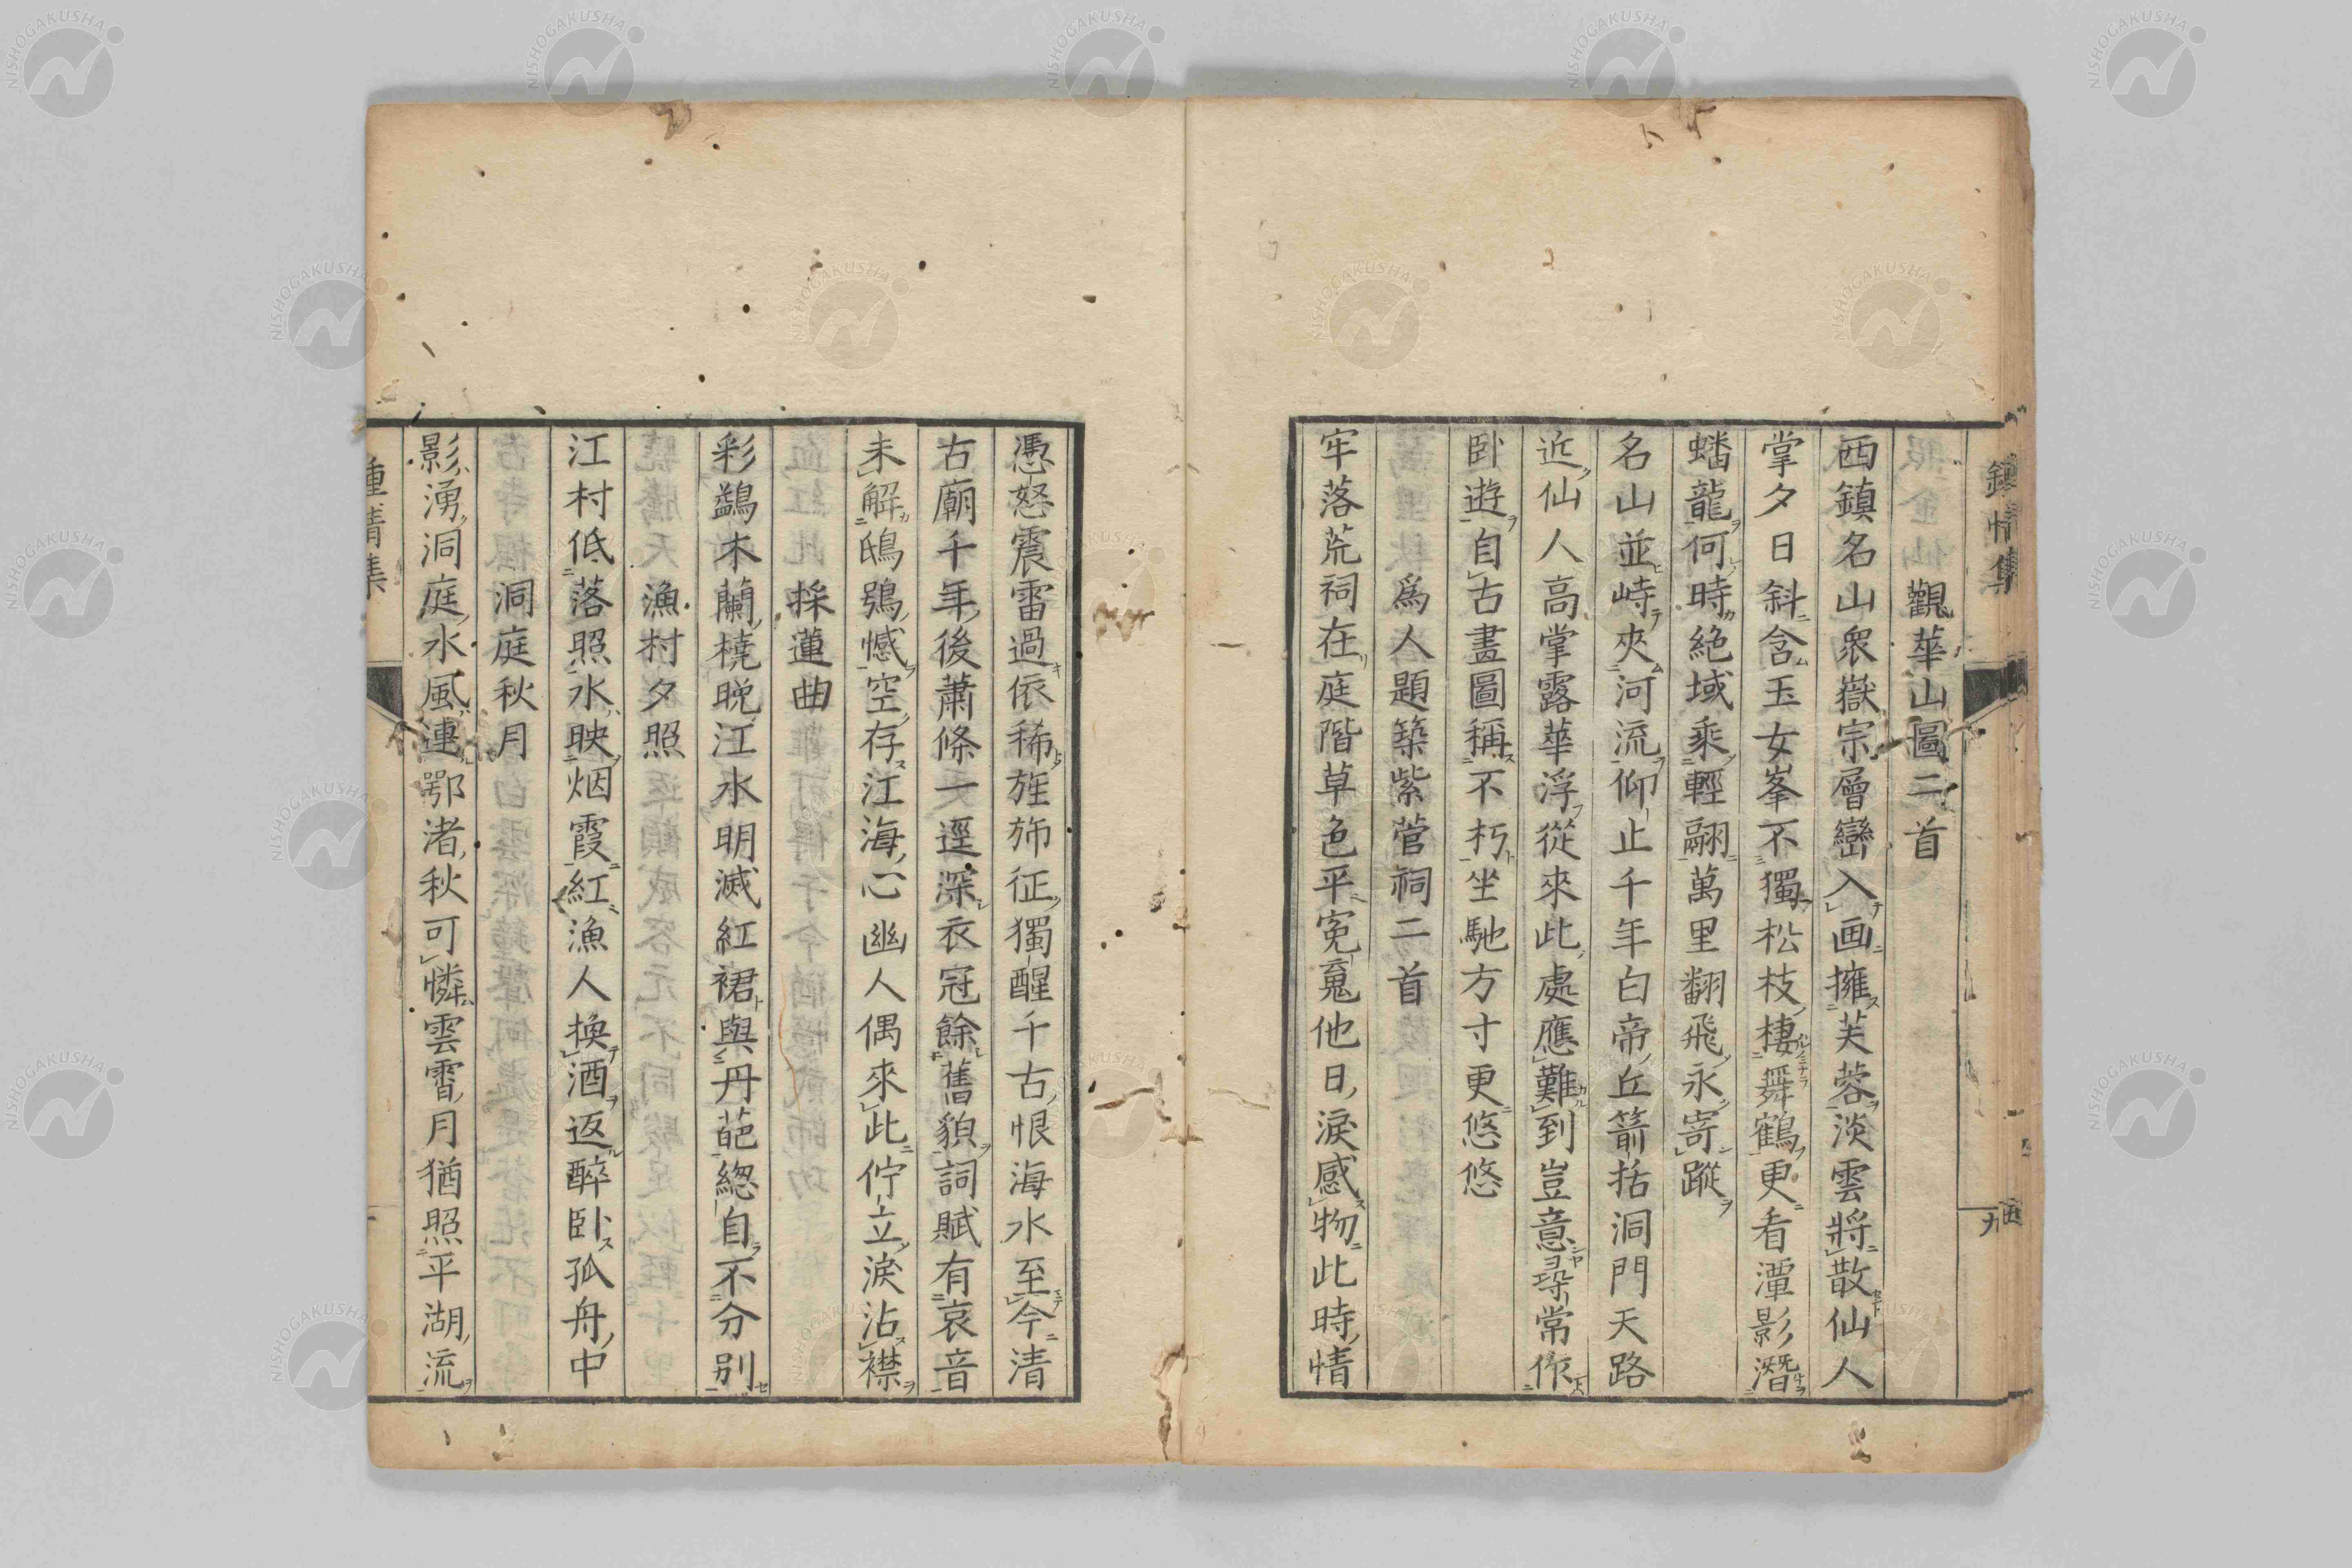 觀華山圖二首
西鎮名山眾嶽宗層巒入画擁芙蓉淡雲將散仙人
掌夕日斜含玉女峯不獨松枝棲舞鶴更看潭影潛
蟠龍何時絕域乘輕翮萬里翻飛永寄蹤
名山並峙夾河流仰止千年白帝丘箭括洞門天路
近仙人高掌露華浮從來此處應難到豈意尋常作
臥遊自古畫圖稱不朽坐馳方寸更悠悠
為人題築紫菅祠二首
牢落荒祠在庭階草色平冤魂他日淚感物此時情
憑怒震雷過依稀旌斾征獨醒千古恨海水至今清
古廟千年後蕭條一逕深衣冠餘舊貌詞賦有哀音
未解鴟鴞憾空存江海心幽人偶來此佇立淚沾襟
採蓮曲
彩鷁木蘭橈晚江水明滅紅裙與丹葩總自不分別
漁村夕照
江村低落照水映烟霞紅漁人換酒返醉臥孤舟中
洞庭秋月
影湧洞庭水風連鄂渚秋可憐雲霄月猶照平湖流
鍾情集
九
NISHOGAKUSHA